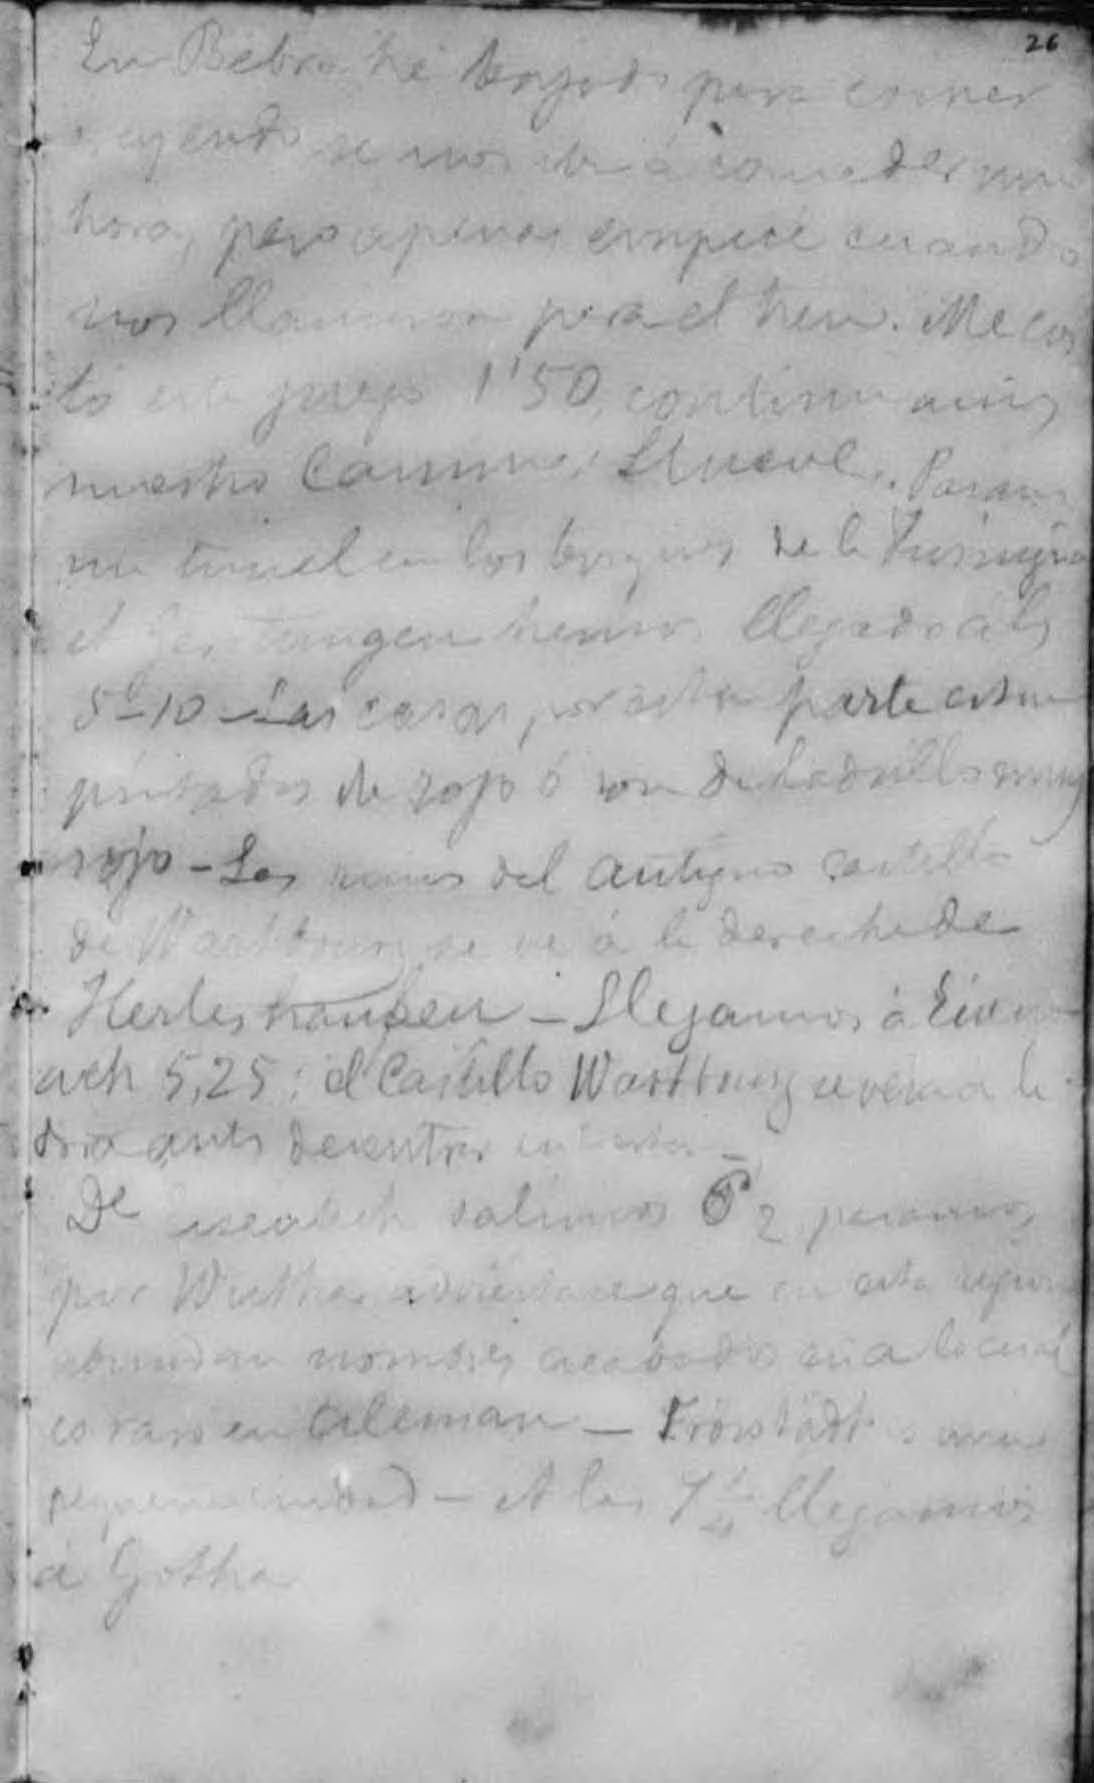 26
En Bebra he bajado para comer
creyendo se nos iba á conceder una
hora, pero apenas empecé cuando
nos llamaron para el tren. Me cos
tó este juego 1'50, continuamos
nuestro camino: Llueve. Pasamos
un tunel en los bosques de la Turingia
á Gerstungen hemos llegado á las
5h 10 - Las casas por esta parte estan
pintadas de rojo ó son de ladrillo muy
rojo - Las ruinas del antiguo castillo
de Wartburg se ve á la derecha de
Herleshausen - Llegamos á Eisen
ach 5,25; el Castillo Wartburg se veia á la
dra antes de entrar en
De salimos 6 2 pasamos
por Wutha adviertase que en esta region
abundan nombres acabados en a lo cual
es raro en Aleman - Fröstädt es una
pequeña ciudad - A las 7 1/4 llegamos
á Gotha